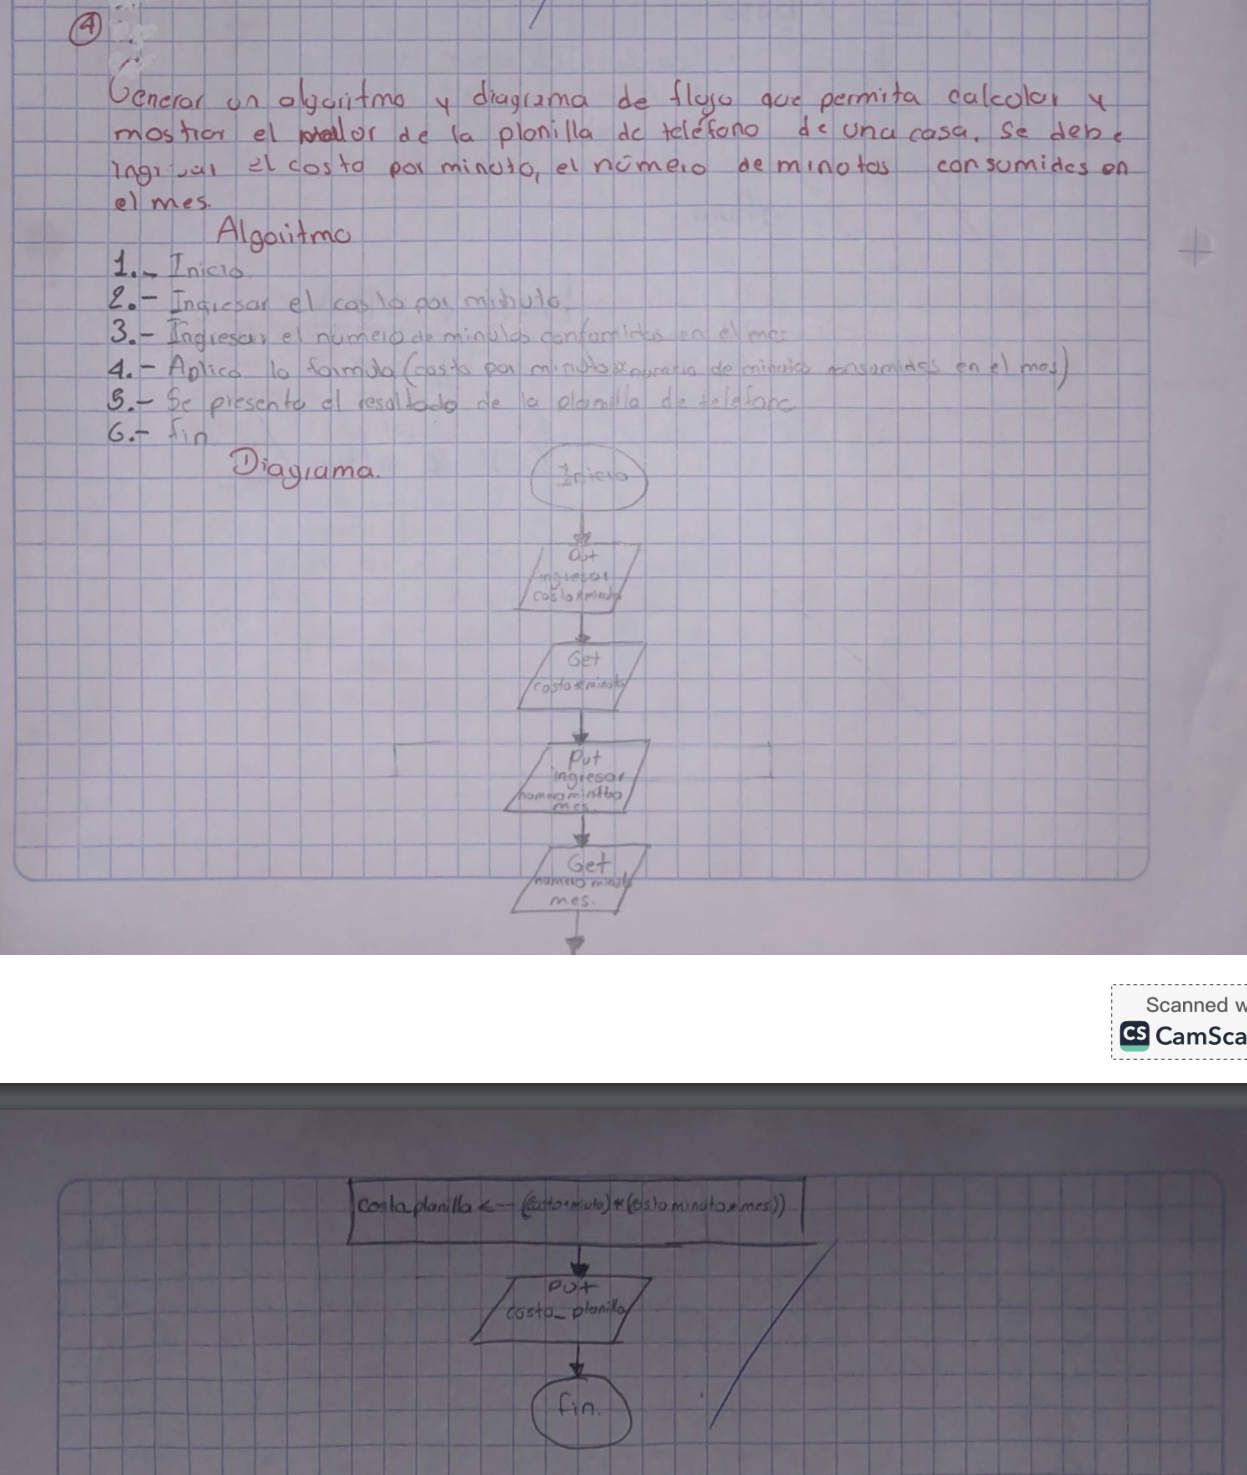 4
Generar un algoritmo y diagrama de flujo que permita calcular y
mostrar el valor de la planilla de teléfono de una casa. Se debe
ingresar el costo por minuto, el número de minutos consumidos en
el mes.
Algoritmo
1.- Inicio
2.- Ingresar el costo por minuto
3.- Ingresar el número de minutos consumidos en el mes
4.- Aplica la formula (costo por minuto * de minutos consumidos en el mes)
5.- Se presenta el resultado de la planilla de telefono
6.- fin
Diagrama.
Inicio
Put
ingresar
costo*minuto
Get
costo*minuto
Put
ingresar
numero minuto
mes.
Get
numero minuto
mes.
Scanned w
CS CamSca
Costa planilla <-
Put
costo_planilla
fin.